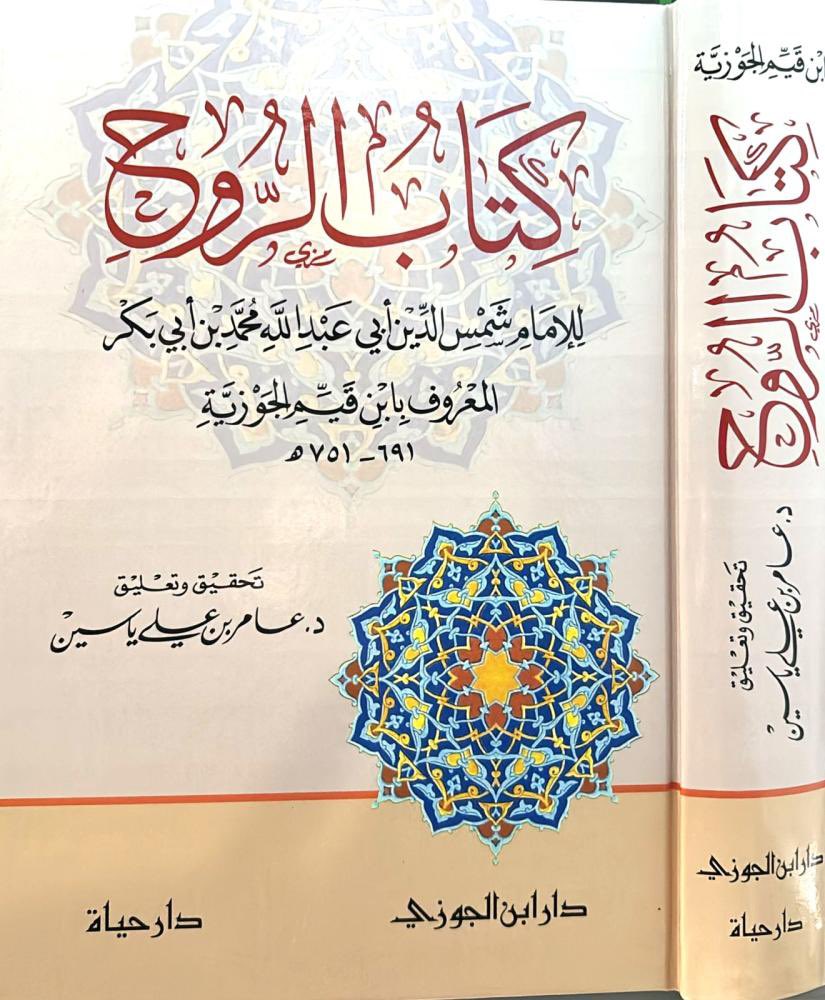 كِتَابُ الرُّوحِ
لِلإِمَامِ شَمْسِ الدِّينِ أَبِي عَبْدِ اللَّهِ مُحَمَّدِ بْنِ أَبِي بَكْرٍ
المَعْرُوفِ بِابْنِ قَيِّمِ الجَوْزِيَّةِ
٦٩١ - ٧٥١ هـ
تَحقيْق وتعْليْق
د. عامر بن علي ياسين
دار ابن الجوزي
دار حياة
ابْن قَيِّمِ الجَوْزِيَّة
كِتَابُ الرُّوحِ
تَحقيْق وتعْليْق
د. عامر بن علي ياسين
دار ابن الجوزي
دار حياة